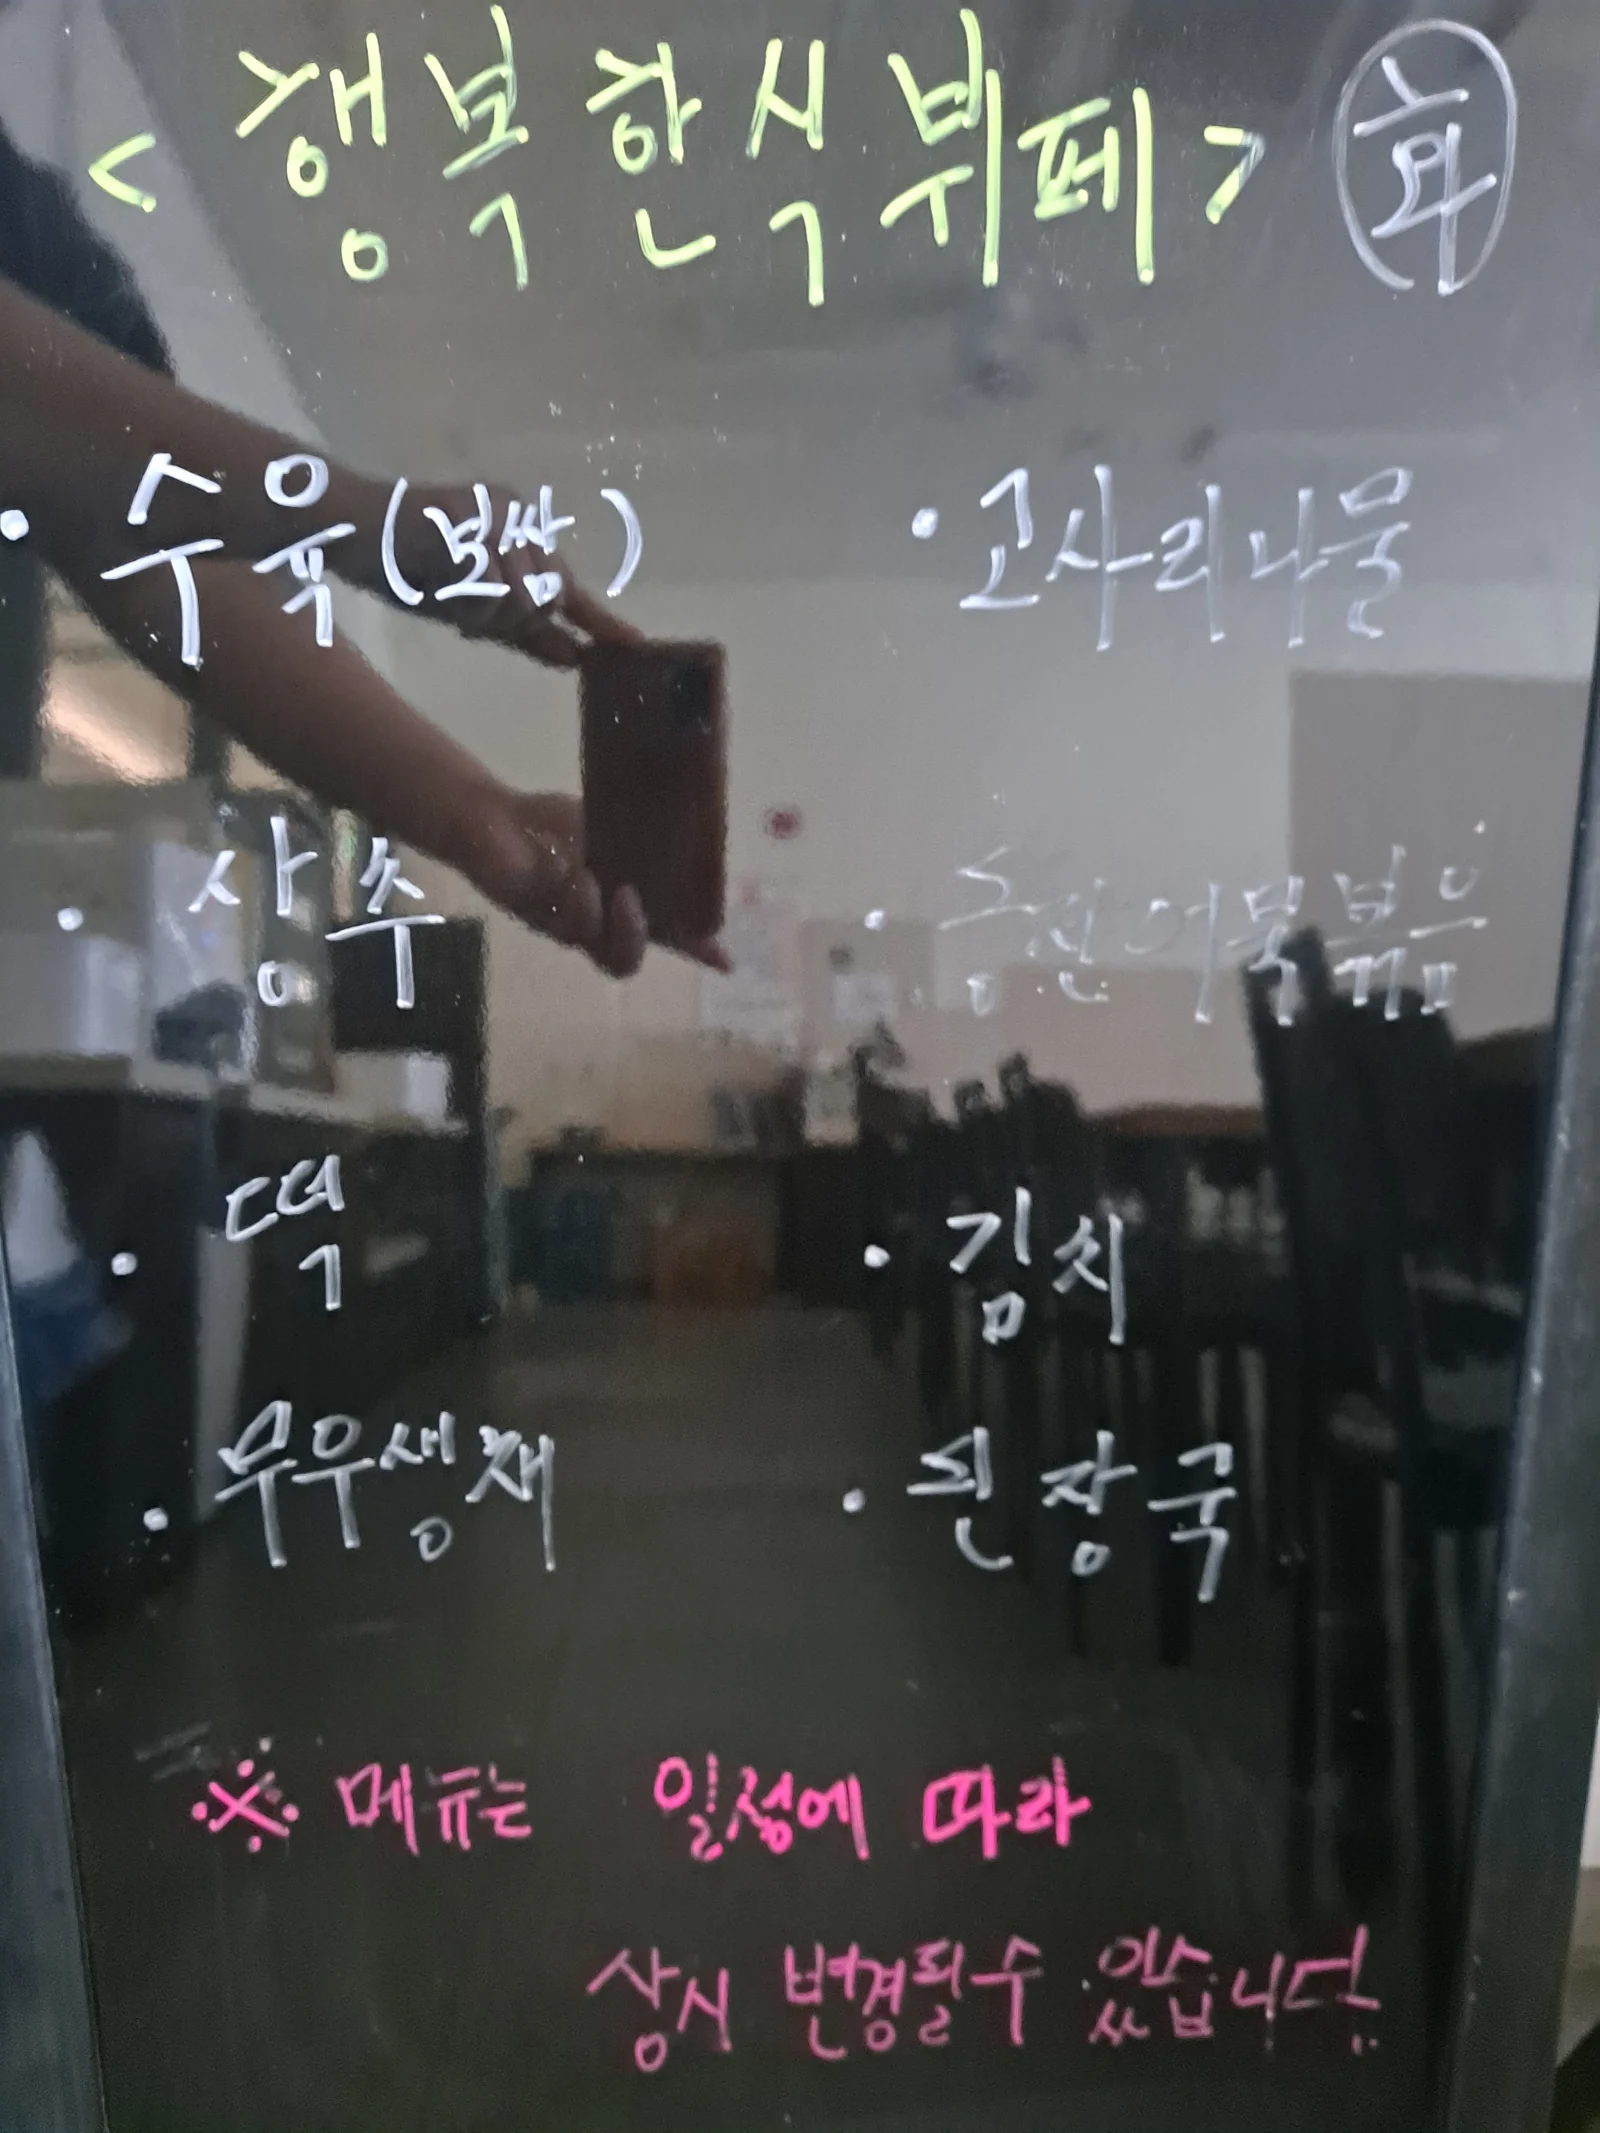 <행복한식뷔페> 화
· 수육(보쌈)
· 고사리나물
· 상추
· 어묵볶음
· 떡
· 김치
· 무우생채
· 된장국
※ 메뉴는 일정에 따라
상시 변경될수 있습니다.